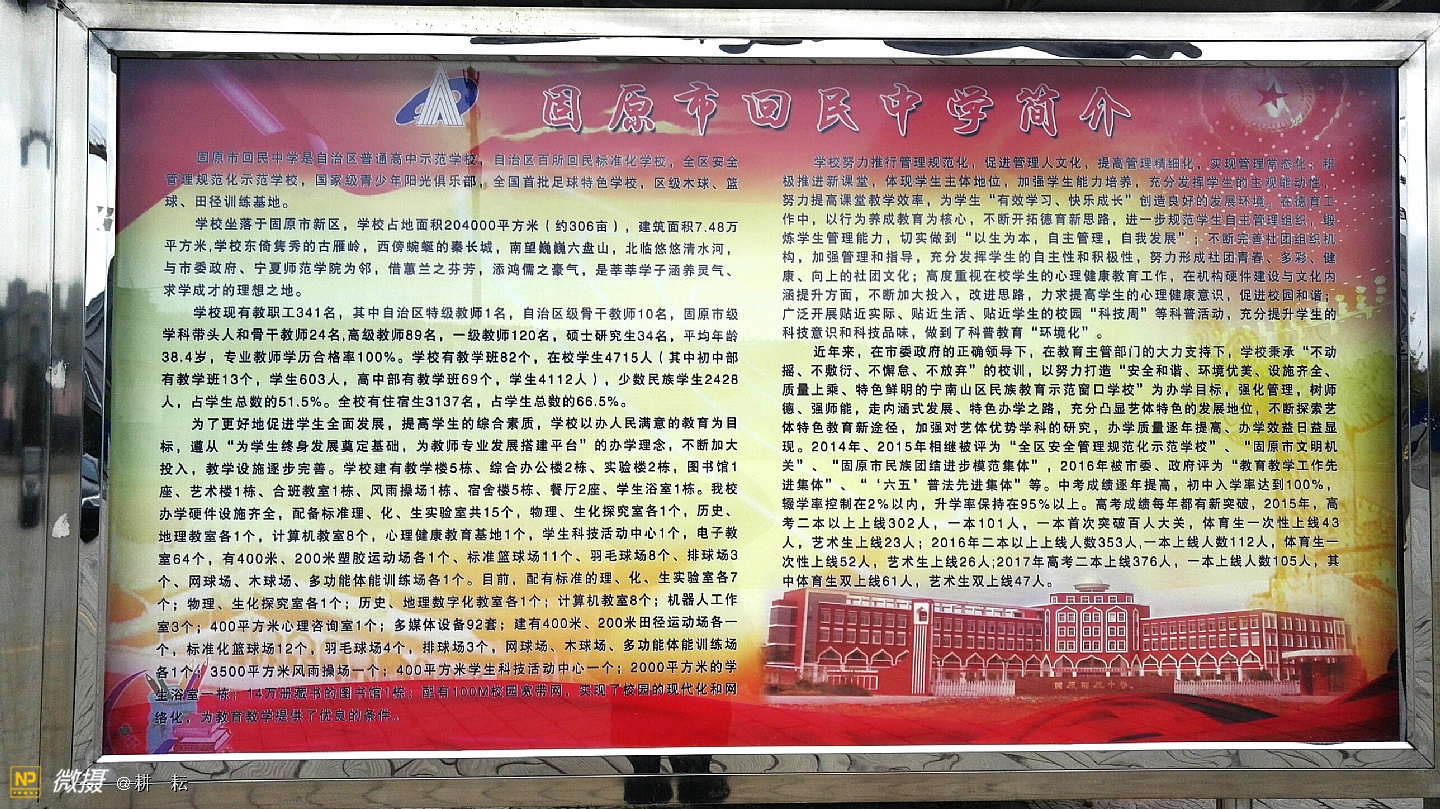 固原市回民中学简介
固原市回民中学是自治区普通高中示范学校，自治区百所回民标准化学校，全区安全
管理规范化示范学校，国家级青少年阳光俱乐部，全国首批足球特色学校，区级木球、篮
球、田径训练基地。
学校坐落于固原市新区，学校占地面积204000平方米（约306亩），建筑面积7.48万
平方米,学校东倚隽秀的古雁岭，西傍蜿蜒的秦长城，南望巍巍六盘山，北临悠悠清水河，
与市委政府、宁夏师范学院为邻，借蕙兰之芬芳，添鸿儒之豪气，是莘莘学子涵养灵气、
求学成才的理想之地。
学校现有教职工341名，其中自治区特级教师1名，自治区级骨干教师10名，固原市级
学科带头人和骨干教师24名,高级教师89名，一级教师120名，硕士研究生34名，平均年龄
38.4岁，专业教师学历合格率100%。学校有教学班82个，在校学生4715人（其中初中部
有教学班13个，学生603人，高中部有教学班69个，学生4112人），少数民族学生2428
人，占学生总数的51.5%。全校有住宿生3137名，占学生总数的66.5%。
为了更好地促进学生全面发展，提高学生的综合素质，学校以办人民满意的教育为目
标，遵从“为学生终身发展奠定基础，为教师专业发展搭建平台”的办学理念，不断加大
投入，教学设施逐步完善。学校建有教学楼5栋、综合办公楼2栋、实验楼2栋，图书馆1
座、艺术楼1栋、合班教室1栋、风雨操场1栋、宿舍楼5栋、餐厅2座、学生浴室1栋。我校
办学硬件设施齐全，配备标准理、化、生实验室共15个，物理、生化探究室各1个，历史、
地理教室各1个，计算机教室8个，心理健康教育基地1个，学生科技活动中心1个，电子教
室64个，有400米、200米塑胶运动场各1个、标准篮球场11个、羽毛球场8个、排球场3
个、网球场、木球场、多功能体能训练场各1个。目前，配有标准的理、化、生实验室各7
个；物理、生化探究室各1个；历史、地理数字化教室各1个；计算机教室8个；机器人工作
室3个；400平方米心理咨询室1个；多媒体设备92套；建有400米、200米田径运动场各一
个，标准化篮球场12个，羽毛球场4个，排球场3个，网球场、木球场、多功能体能训练场
各1个；3500平方米风雨操场一个；400平方米学生科技活动中心一个；2000平方米的学
生浴室一栋；14万册藏书的图书馆1栋；配有100M校园宽带网，实现了校园的现代化和网
络化，为教育教学提供了优良的条件。
学校努力推行管理规范化，促进管理人文化，提高管理精细化，实现管理常态化；积
极推进新课堂，体现学生主体地位，加强学生能力培养，充分发挥学生的主观能动性，
努力提高课堂教学效率，为学生“有效学习、快乐成长”创造良好的发展环境。在德育工
作中，以行为养成教育为核心，不断开拓德育新思路，进一步规范学生自主管理组织，锻
炼学生管理能力，切实做到“以生为本，自主管理，自我发展”；不断完善社团组织机
构，加强管理和指导，充分发挥学生的自主性和积极性，努力形成社团青春、多彩、健
康、向上的社团文化；高度重视在校学生的心理健康教育工作，在机构硬件建设与文化内
涵提升方面，不断加大投入，改进思路，力求提高学生的心理健康意识，促进校园和谐；
广泛开展贴近实际、贴近生活、贴近学生的校园“科技周”等科普活动，充分提升学生的
科技意识和科技品味，做到了科普教育“环境化”。
近年来，在市委政府的正确领导下，在教育主管部门的大力支持下，学校秉承“不动
摇、不敷衍、不懈怠、不放弃”的校训，以努力打造“安全和谐、环境优美、设施齐全、
质量上乘、特色鲜明的宁南山区民族教育示范窗口学校”为办学目标，强化管理，树师
德、强师能，走内涵式发展、特色办学之路，充分凸显艺体特色的发展地位，不断探索艺
体特色教育新途径，加强对艺体优势学科的研究，办学质量逐年提高、办学效益日益显
现。2014年、2015年相继被评为“全区安全管理规范化示范学校”、“固原市文明机
关”、“固原市民族团结进步模范集体”，2016年被市委、政府评为“教育教学工作先
进集体”、“‘六五’普法先进集体”等。中考成绩逐年提高，初中入学率达到100%，
辍学率控制在2%以内，升学率保持在95%以上。高考成绩每年都有新突破，2015年，高
考二本以上上线302人，一本101人，一本首次突破百人大关，体育生一次性上线43
人，艺术生上线23人；2016年二本以上上线人数353人,一本上线人数112人，体育生一
次性上线52人，艺术生上线26人;2017年高考二本上线376人，一本上线人数105人，其
中体育生双上线61人，艺术生双上线47人。
固原回民中学
NP 微摄 @耕 耘